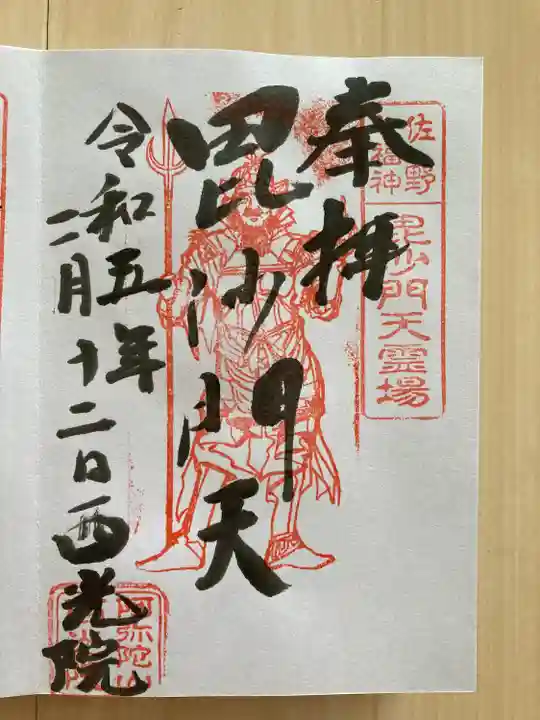 佐野
福神
毘沙門天霊場
奉拝
毘沙門天
令和五年
二月十二日
西光院
阿弥陀山